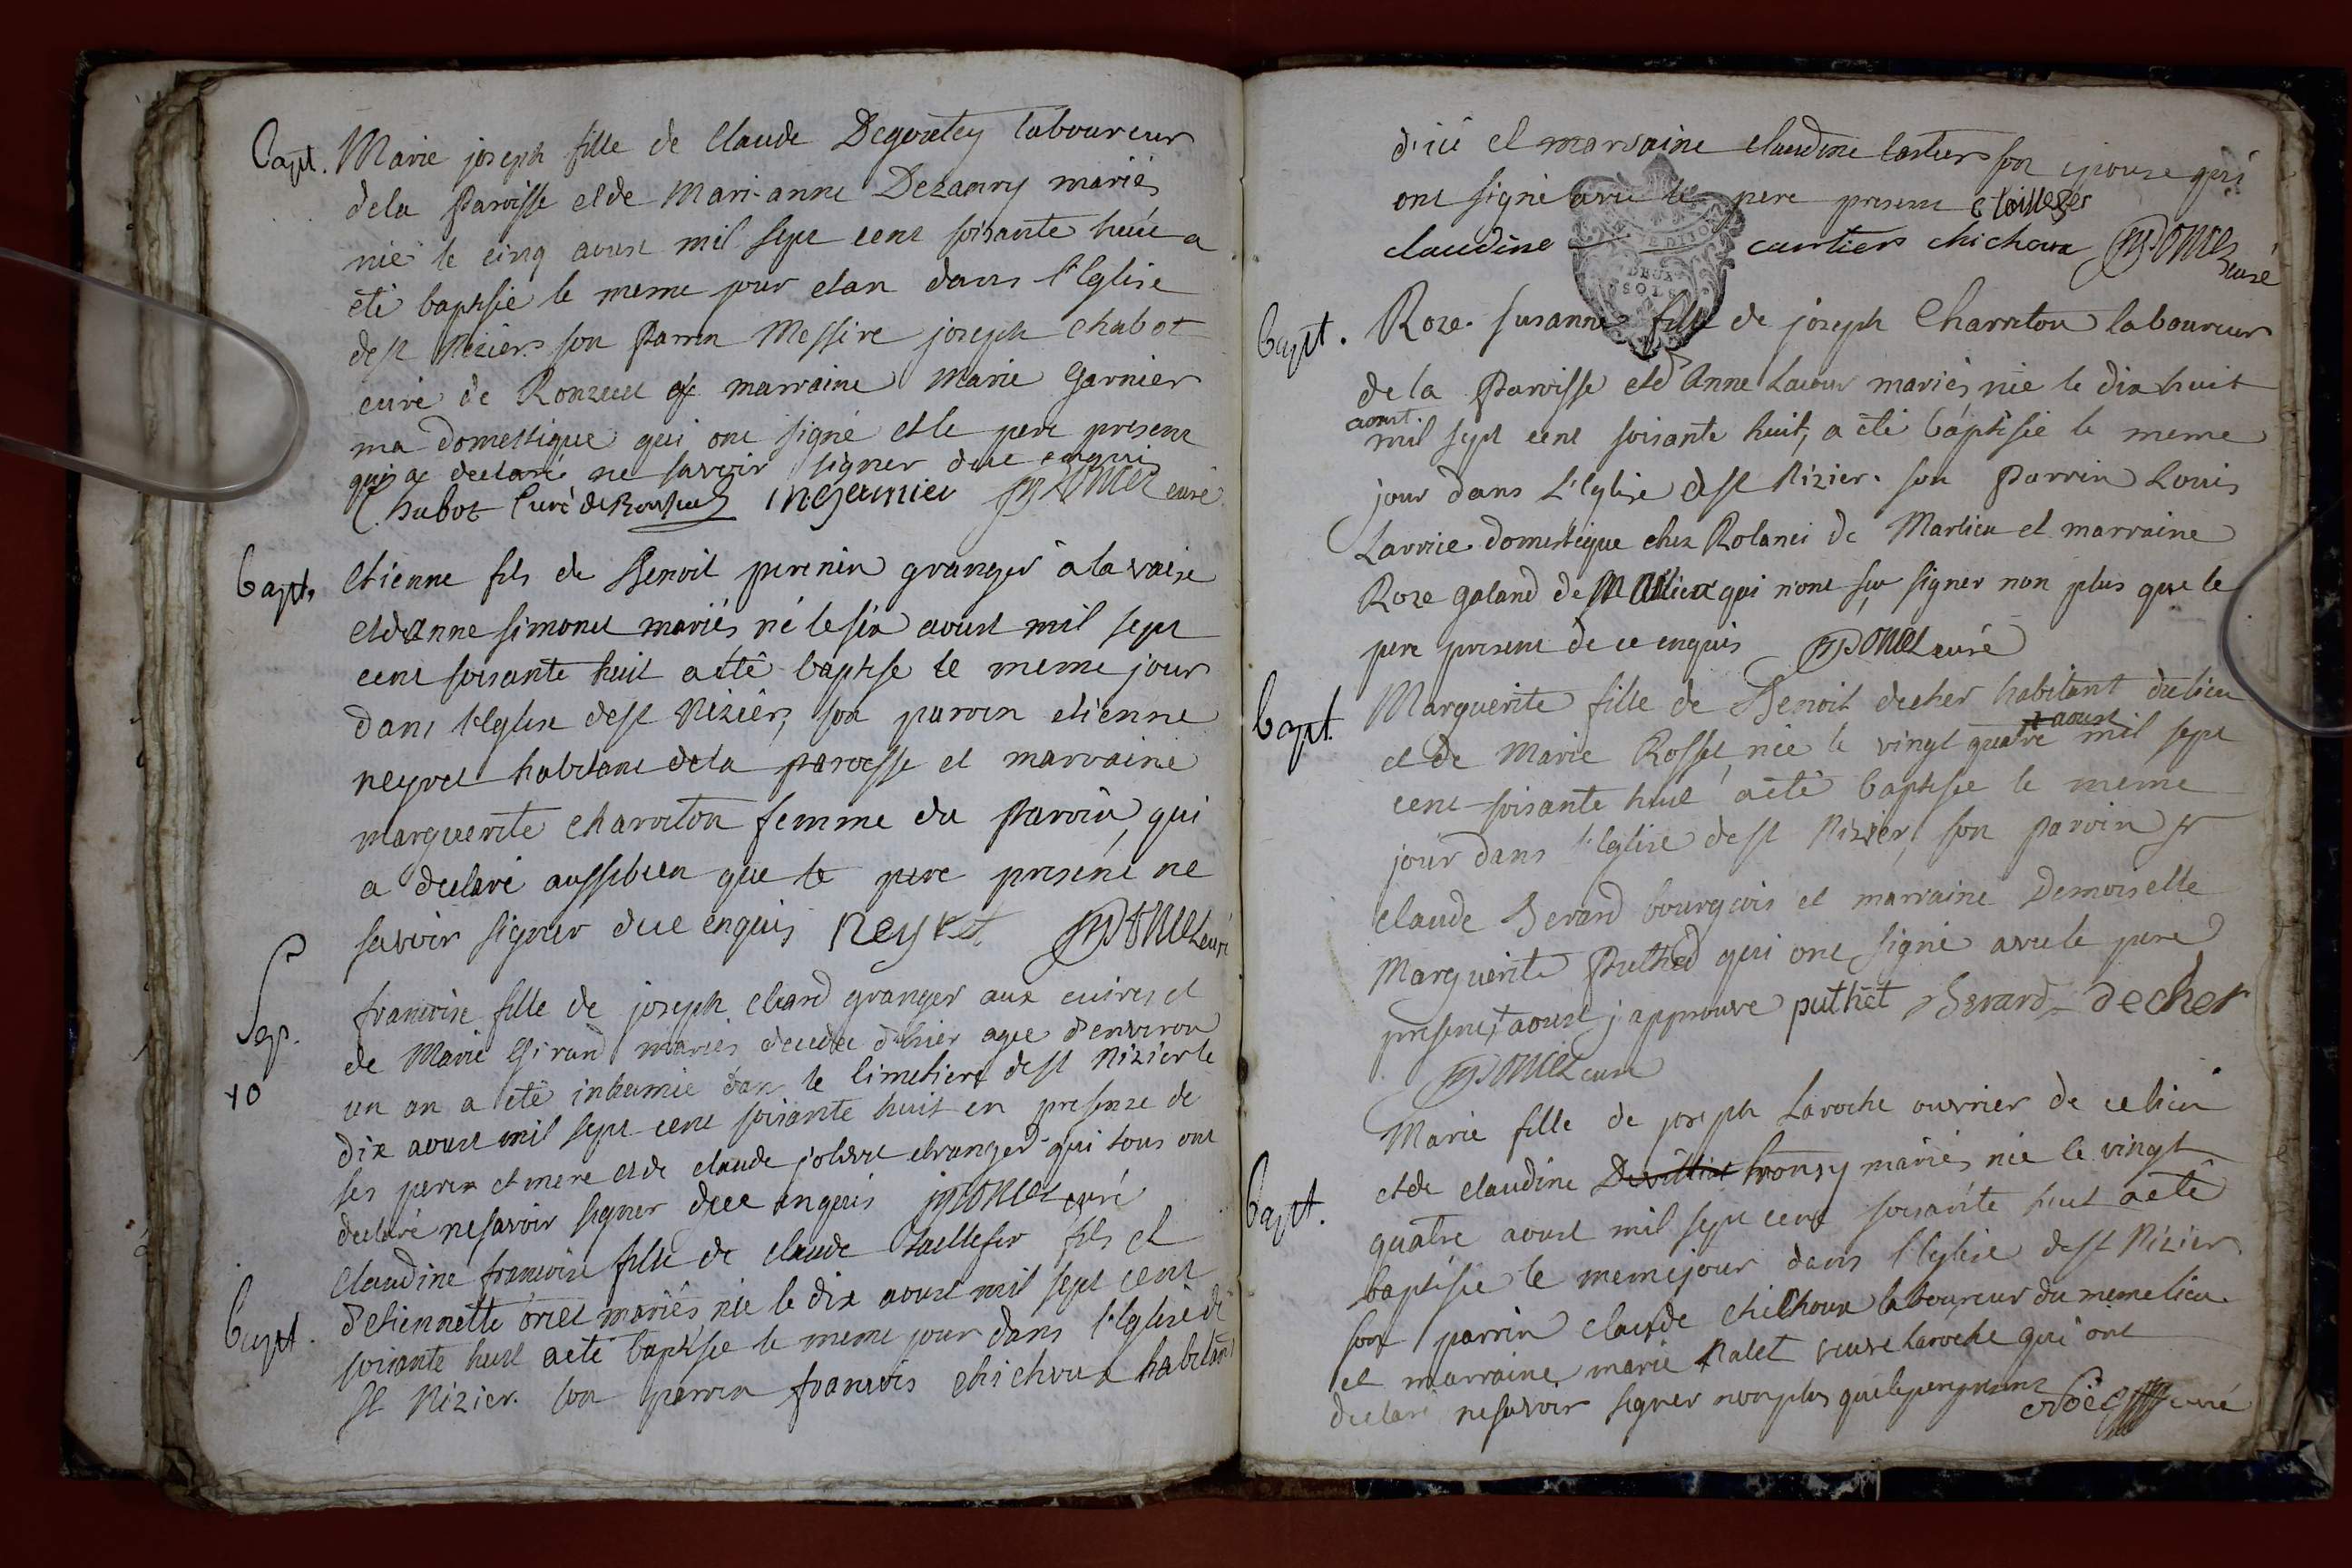 Bapt. Marie joseph fille de Claude Degoutey laboureur
dela Paroisse et de Mari-anne Dezamry mariés
née le cinq aoust mil sept cent soisante huit a
été baptisée le meme jour dans l'Eglise
de st Nizier son Parrin Messire joseph Chabot
curé de Ronzuel et marraine Marie Garnier
ma domestique qui ont signé et le pere present
qui a declaré ne savoir signer de ce enquis
Chabot Curé de Ronzuel m garnier poncet curé
bapt. Etienne fils de Benoit perenin granger à la vaise
et d'anne simonet mariés né le six aoust mil sept
cent soisante huit a été baptisé le meme jour
dans l'Eglise de st Nizier, son parrin etienne
neyret habitant de la paroisse et marraine
marguerite charriton femme du Parrin, qui
a declaré aussi bien que le pere present ne
savoir signer de ce enquis Neyret poncet curé
Sep. françoise fille de joseph chard granger aux cuires et
de Marie Girand mariés decedée d'hier agée d'environ
10 un an a été inhumée dans le cimetiere de st Nizier le
dix aoust mil sept cent soisante huit en presence de
ses pere et mere et de claude jolivet etranger qui tous ont
declaré ne savoir signer de ce enquis poncet curé
Bapt. Claudine françoise fille de claude taillefer fils et
d'etiennette oriet mariés, née le dix aoust mil sept cent
soisante huit a été baptisée le meme jour dans l'Eglise de
St Nizier. son parrin françois chichoux habitant
d'ici et marraine claudine cartier son epouse qui
ont signé avec le pere present c taillefer
claudine cartier chichoux poncet curé
bapt. Roze Susanne fille de joseph Charriton laboureur
de la Paroisse et d'Anne mariés, née le dix huit
aout
mil sept cent soisante huit, a été baptisée le meme
jour dans L'Eglise de st Nizier. son Parrin Louis
Larrice domestique chez Rolanei de Marlieu et marraine
Roze galand de Marlieu qui n'ont sçu signer non plus que le
pere present de ce enquis poncet curé
bapt. Marguerite fille de Benoit decher habitant du lieu
+ aoust
et de Marie Rosset, née le vingt quatre mil sept
cent soisante huit a été baptisée le meme
jour dans l'Eglise de st Nizier, son Parrin sr
Claude Berard bourgeois et marraine Demoiselle
Marguerite Puthod qui ont signé avec le pere
present, + aoust j'approuve puthet Berard decher
poncet curé
Marie fille de joseph Laroche ouvrier de ce lieu
bapt. et de claudine tronsy mariés, née le vingt
quatre aoust mil sept cent soisante huit a été
baptisée le meme jour dans l'Eglise de st Nizier
son parrin claude chichoux laboureur du meme lieu
et marraine marie Nalet veuve laroche qui ont
declaré ne savoir signer non plus que le pere present poncet curé